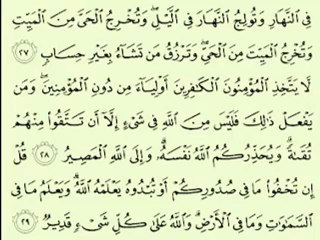 فِي ٱلنَّهَارِ وَتُولِجُ ٱلنَّهَارَ فِي ٱلَّيۡلِۖ وَتُخۡرِجُ ٱلۡحَيَّ مِنَ ٱلۡمَيِّتِ
وَتُخۡرِجُ ٱلۡمَيِّتَ مِنَ ٱلۡحَيِّۖ وَتَرۡزُقُ مَن تَشَآءُ بِغَيۡرِ حِسَابٖ ٢٧
لَّا يَتَّخِذِ ٱلۡمُؤۡمِنُونَ ٱلۡكَٰفِرِينَ أَوۡلِيَآءَ مِن دُونِ ٱلۡمُؤۡمِنِينَۖ وَمَن
يَفۡعَلۡ ذَٰلِكَ فَلَيۡسَ مِنَ ٱللَّهِ فِي شَيۡءٍ إِلَّآ أَن تَتَّقُواْ مِنۡهُمۡ
تُقَىٰةٗۗ وَيُحَذِّرُكُمُ ٱللَّهُ نَفۡسَهُۥۗ وَإِلَى ٱللَّهِ ٱلۡمَصِيرُ ٢٨ قُلۡ
إِن تُخۡفُواْ مَا فِي صُدُورِكُمۡ أَوۡ تُبۡدُوهُ يَعۡلَمۡهُ ٱللَّهُۗ وَيَعۡلَمُ مَا فِي
ٱلسَّمَٰوَٰتِ وَمَا فِي ٱلۡأَرۡضِۗ وَٱللَّهُ عَلَىٰ كُلِّ شَيۡءٖ قَدِيرٞ ٢٩